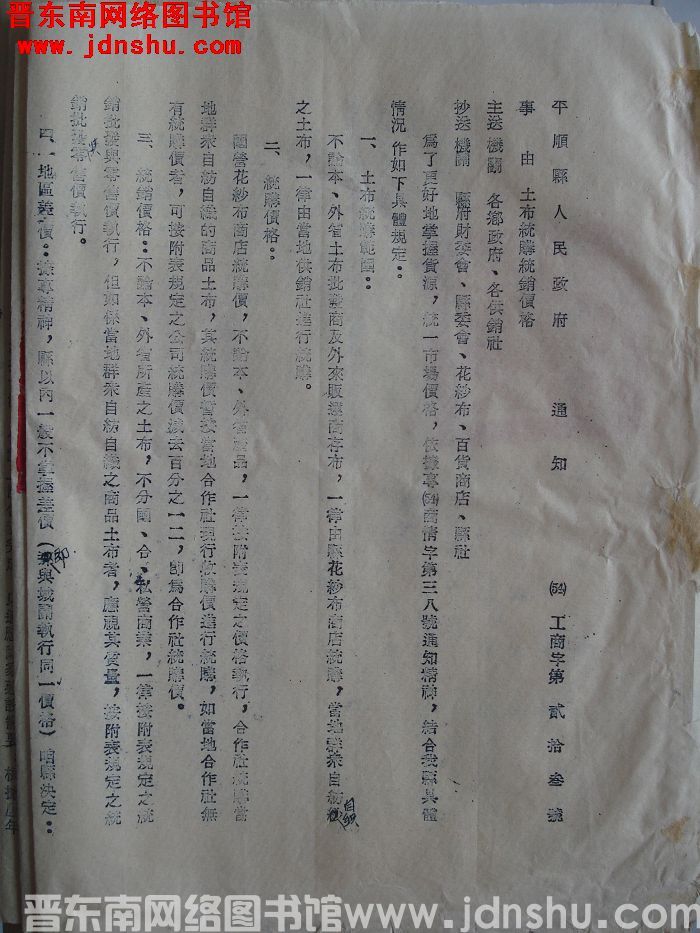 晋东南网络图书馆
www.jdnshu.com
平順縣人民政府 通知 (54)工商字第貳拾叁號
事由 土布統購統銷價格
主送機關 各鄉政府、各供銷社
抄送機關 縣府財委會、縣委會、花紗布、百貨商店、縣社
為了更好地掌握貨源，統一市場價格，依據專(54)商情字第三八號通知精神，結合我縣具體
情况作如下具體規定：
一、土布統購範圍：
不論本、外省土布批發商及外來販運商存布，一律由縣花紗布商店統購，當地群衆自紡自織
之土布，一律由當地供銷社進行統購。
二、統購價格：
國營花紗布商店統購價，不論本、外省產品，一律按附表規定之價格執行，合作社統購當
地群衆自紡自織的商品土布，其統購價暫按當地合作社現行收購價進行統購，如當地合作社無
有統購價者，可按附表規定之公司統購價減去百分之一二，即為合作社統購價。
三、統銷價格：不論本、外省所產之土布，不分國、合、私營商業，一律按附表規定之統
銷批發與零售價執行，但如係當地群衆自紡自織之商品土布者，應視其質量，按附表規定之統
銷批發零售價執行。
四、地區差價：按專精神，縣以內一般不掌握差價（即與城關執行同一價格）咱縣決定：
晋东南网络图书馆www.jdnshu.com